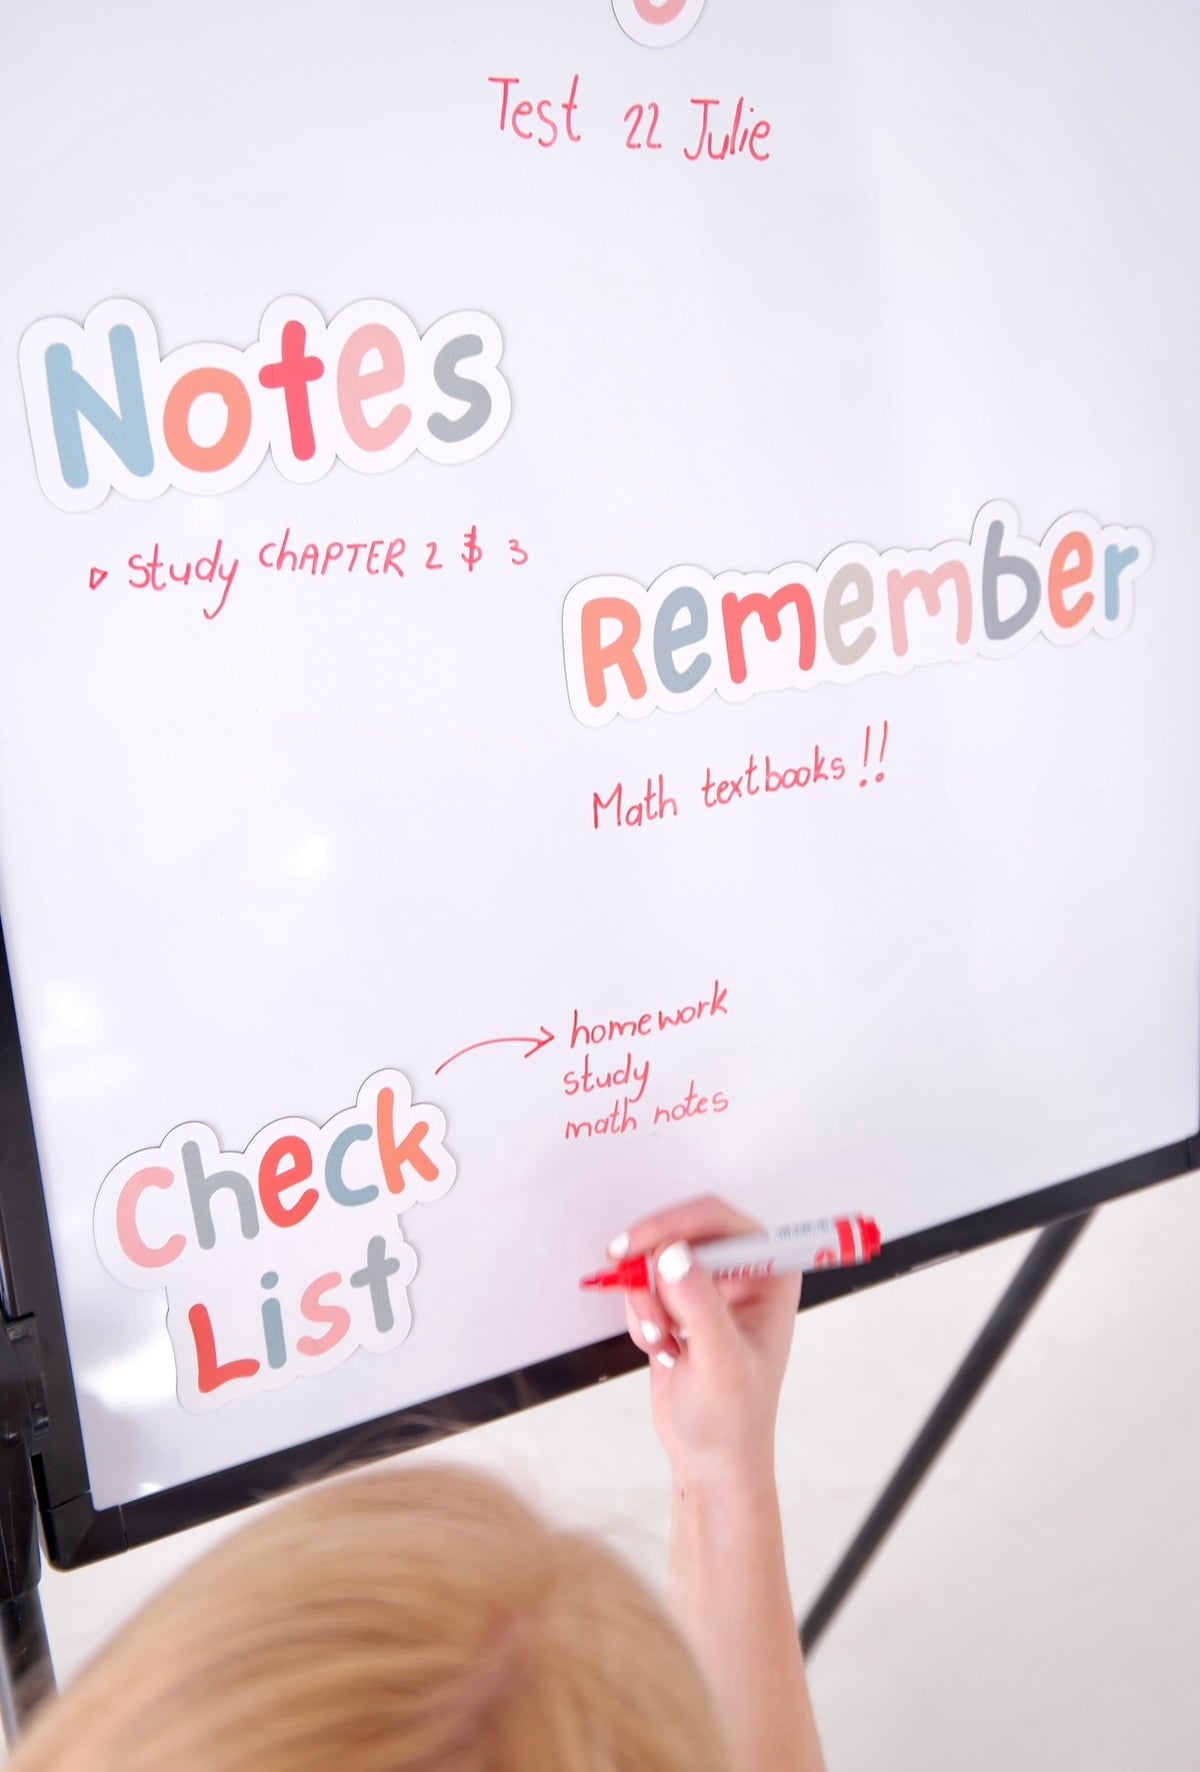 Test 22 Julie
Notes
Study ChAPTER 2 $ 3
Remember
Math textbooks !!
homework
study
math notes
Check
List